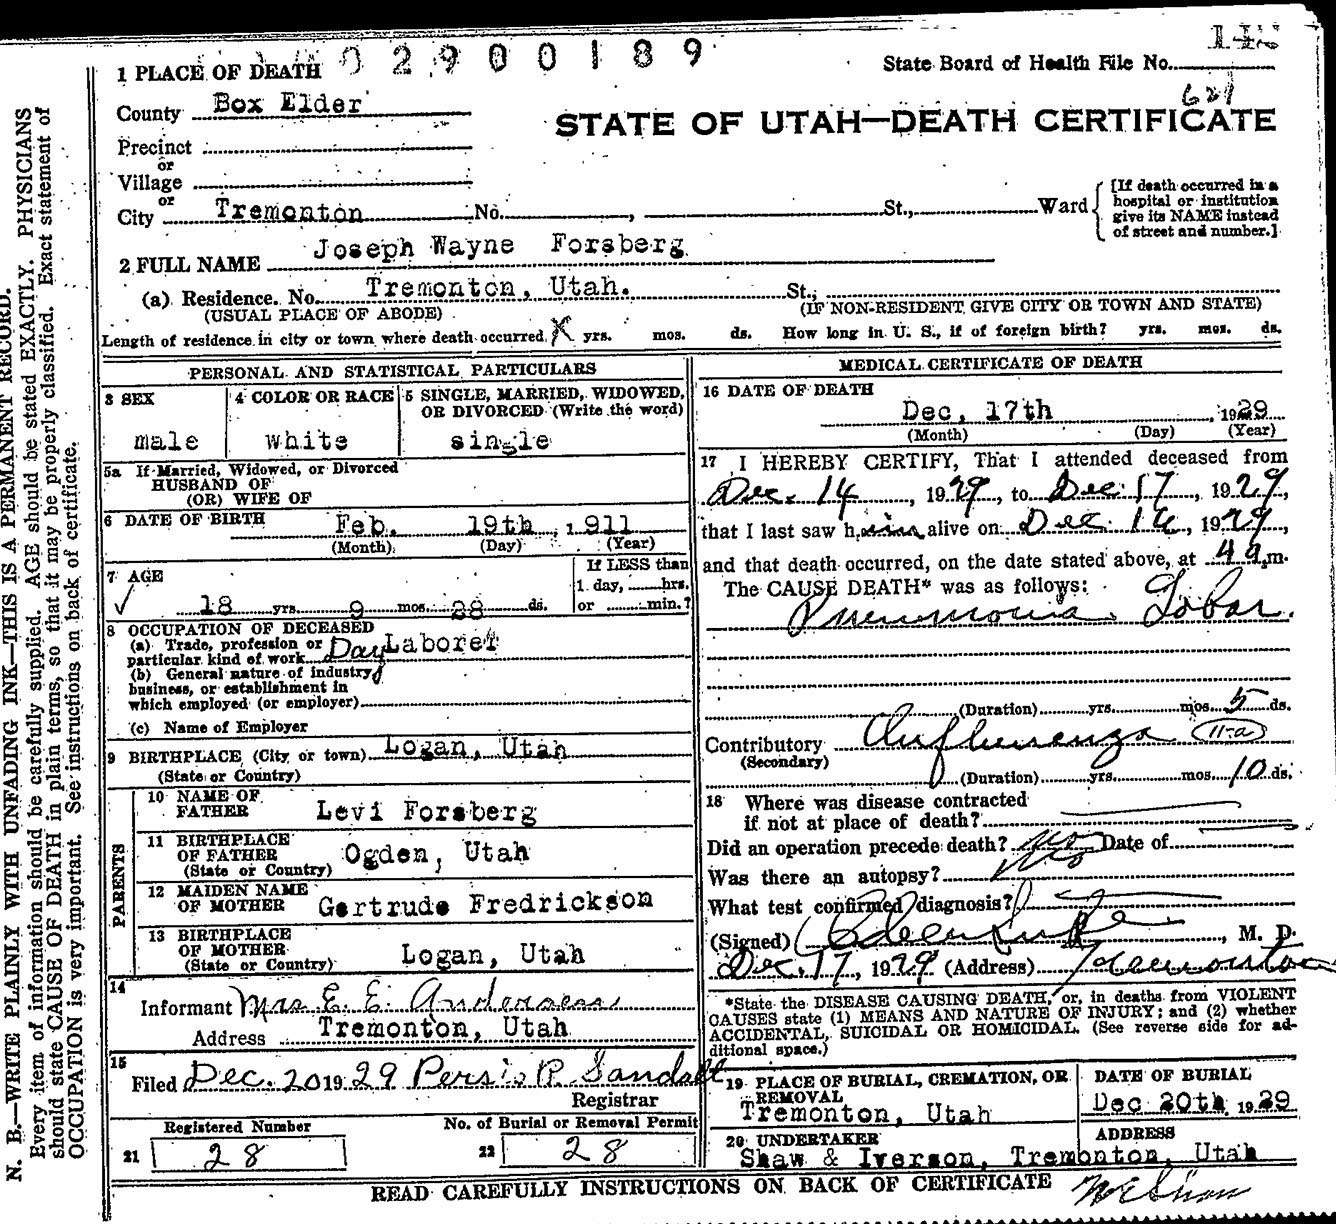 02900189
State Board of Health File No.
1 PLACE OF DEATH
County Box Elder
621
STATE OF UTAH—DEATH CERTIFICATE
Precinct
or
Village
or
City Tremonton No. , St., Ward
[If death occurred in a
hospital or institution
give its NAME instead
of street and number.]
2 FULL NAME Joseph Wayne Forsberg
(a) Residence. No. Tremonton, Utah. St.,
(USUAL PLACE OF ABODE) (IF NON-RESIDENT GIVE CITY OR TOWN AND STATE)
Length of residence in city or town where death occurred X yrs. mos. ds. How long in U. S., if of foreign birth? yrs. mos. ds.
PERSONAL AND STATISTICAL PARTICULARS
3 SEX
male
4 COLOR OR RACE
white
5 SINGLE, MARRIED, WIDOWED,
OR DIVORCED (Write the word)
single
5a If Married, Widowed, or Divorced
HUSBAND OF
(OR) WIFE OF
6 DATE OF BIRTH Feb. 19th , 1911
(Month) (Day) (Year)
7 AGE
18 yrs. 9 mos. 28 ds.
If LESS than
1 day, hrs.
or min.?
8 OCCUPATION OF DECEASED
(a) Trade, profession or
particular kind of work Day Laborer
(b) General nature of industry
business, or establishment in
which employed (or employer)
(c) Name of Employer
9 BIRTHPLACE (City or town) Logan, Utah
(State or Country)
PARENTS
10 NAME OF
FATHER Levi Forsberg
11 BIRTHPLACE
OF FATHER Ogden, Utah
(State or Country)
12 MAIDEN NAME
OF MOTHER Gertrude Fredrickson
13 BIRTHPLACE
OF MOTHER Logan, Utah
(State or Country)
14
Informant Mrs E. E. Andersen
Address Tremonton, Utah
15
Filed Dec. 20 1929 Persis R. Sandall
Registrar
Registered Number
21 28
No. of Burial or Removal Permit
22 28
MEDICAL CERTIFICATE OF DEATH
16 DATE OF DEATH
Dec, 17th , 1929
(Month) (Day) (Year)
17 I HEREBY CERTIFY, That I attended deceased from
Dec. 14 , 1929, to Dec. 17, 1929,
that I last saw him alive on Dec. 16, 1929,
and that death occurred, on the date stated above, at 4 a.m.
The CAUSE DEATH* was as follows:
Pneumonia Lobar.
(Duration) yrs. mos. 5 ds.
Contributory Influenza 11-a
(Secondary)
(Duration) yrs. mos. 10 ds.
18 Where was disease contracted
if not at place of death?
Did an operation precede death? no Date of
Was there an autopsy? no
What test confirmed diagnosis?
(Signed) , M. D.
Dec. 17, 1929 (Address) Tremonton
*State the DISEASE CAUSING DEATH, or, in deaths from VIOLENT
CAUSES state (1) MEANS AND NATURE OF INJURY; and (2) whether
ACCIDENTAL, SUICIDAL OR HOMICIDAL. (See reverse side for ad-
ditional space.)
19 PLACE OF BURIAL, CREMATION, OR
REMOVAL
Tremonton, Utah
DATE OF BURIAL
Dec 20th 1929
20 UNDERTAKER ADDRESS
Shaw & Iverson, Tremonton, Utah
READ CAREFULLY INSTRUCTIONS ON BACK OF CERTIFICATE
N. B.—WRITE PLAINLY WITH UNFADING INK—THIS IS A PERMANENT RECORD.
Every item of information should be carefully supplied. AGE should be stated EXACTLY. PHYSICIANS
should state CAUSE OF DEATH in plain terms, so that it may be properly classified. Exact statement of
OCCUPATION is very important. See instructions on back of certificate.